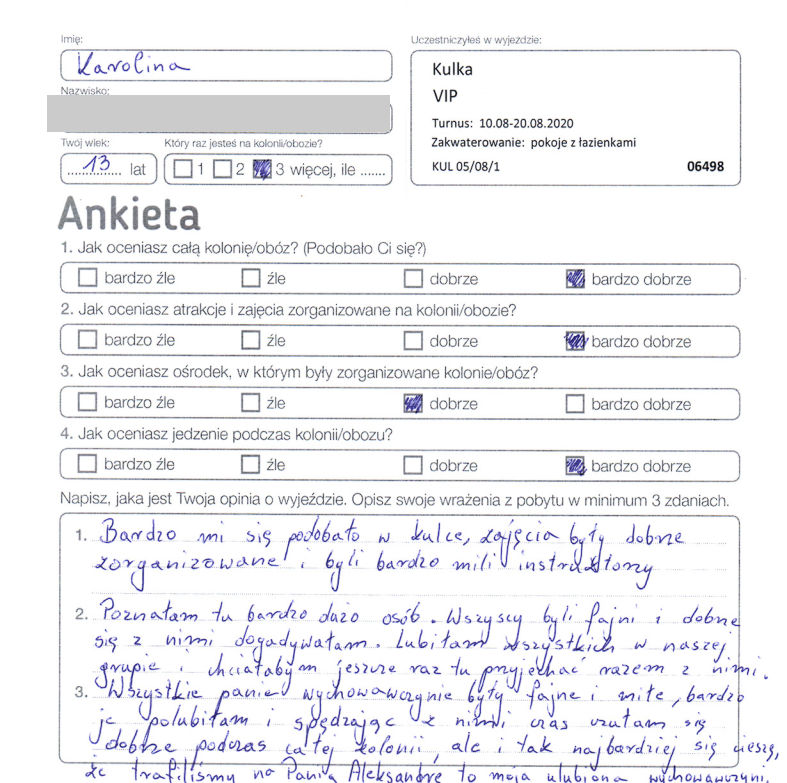 Imię:
Uczestniczyłeś w wyjeździe:
Karolina
Kulka
VIP
Nazwisko:
Turnus: 10.08-20.08.2020
Zakwaterowanie: pokoje z łazienkami
KUL 05/08/1 06498
Twój wiek: Który raz jesteś na kolonii/obozie?
13 lat 1 2 3 więcej, ile .......
Ankieta
1. Jak oceniasz całą kolonię/obóz? (Podobało Ci się?)
bardzo źle źle dobrze bardzo dobrze
2. Jak oceniasz atrakcje i zajęcia zorganizowane na kolonii/obozie?
bardzo źle źle dobrze bardzo dobrze
3. Jak oceniasz ośrodek, w którym były zorganizowane kolonie/obóz?
bardzo źle źle dobrze bardzo dobrze
4. Jak oceniasz jedzenie podczas kolonii/obozu?
bardzo źle źle dobrze bardzo dobrze
Napisz, jaka jest Twoja opinia o wyjeździe. Opisz swoje wrażenia z pobytu w minimum 3 zdaniach.
1. Bardzo mi się podobało w kulce, zajęcia były dobrze
zorganizowane i byli bardzo mili instruktorzy
2. Poznałam tu bardzo dużo osób. Wszyscy byli fajni i dobrze
się z nimi dogadywałam. Lubiłam wszystkich w naszej
grupie i chciałabym jeszcze raz tu przyjechać razem z nimi.
3. Wszystkie panie wychowawczynie były fajne i miłe, bardzo
je polubiłam i spędzając z nimi czas czułam się
dobrze podczas całej kolonii, ale i tak najbardziej się cieszę,
że trafiliśmy na Panią Aleksandrę to moja ulubiona wychowawczyni.